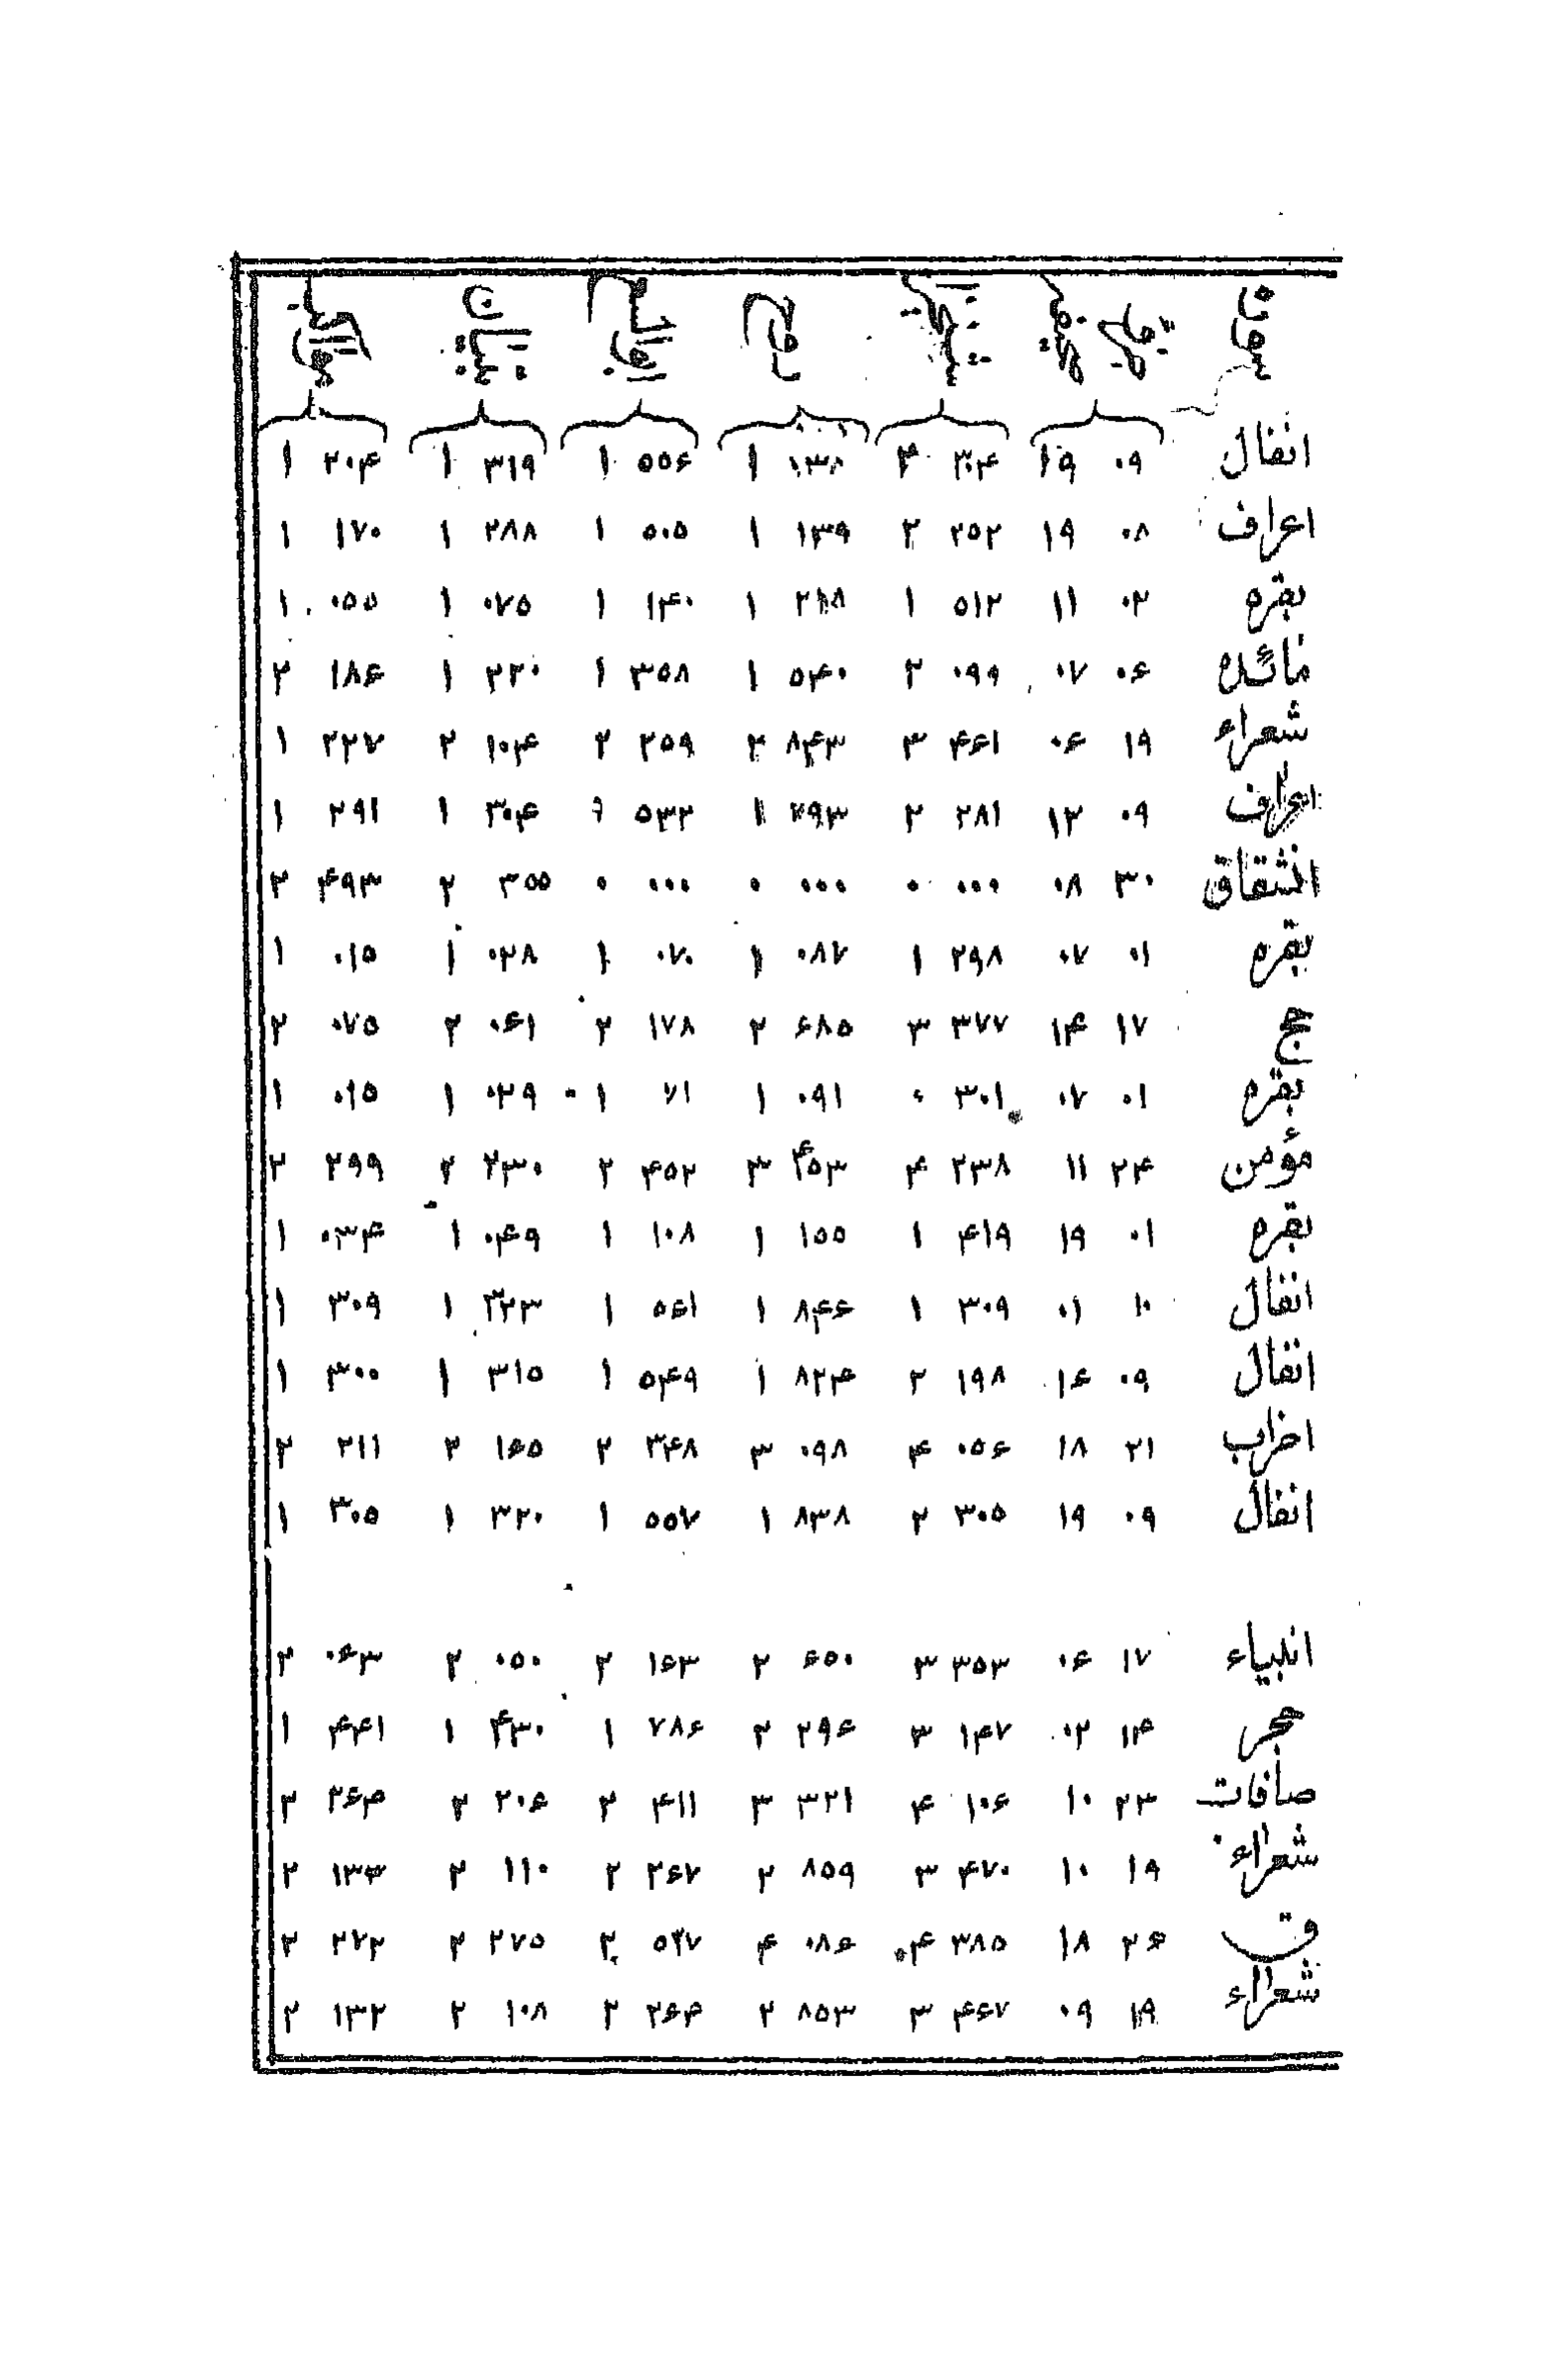 انفال ۰۹ ۱۹ ۳۰۴ ۱ ۵۵۶ ۱ ۳۱۹ ۱
اعراف ۰۸ ۱۹ ۲۵۲ ۲ ۱۳۹ ۱ ۵۰۵ ۱ ۲۸۸ ۱ ۱۷۰ ۱
بقره ۰۲ ۱۱ ۵۱۲ ۱ ۱ ۱۴۰ ۱ ۰۷۵ ۱ ۰۵۵ ۱
مائده ۰۶ ۰۷ ۰۹۹ ۲ ۵۴۰ ۱ ۳۵۸ ۱ ۲۲۰ ۱ ۱۸۶ ۲
شعراء ۱۹ ۰۶ ۴۶۱ ۳ ۸۴۳ ۲ ۲۵۹ ۲ ۱۰۴ ۲ ۲۲۷ ۱
اعراف ۰۹ ۱۲ ۲۸۱ ۲ ۷۹۳ ۱ ۵۳۲ ۳۰۴ ۱ ۲۹۱ ۱
انشقاق ۳۰ ۰۸ ۰۰۰ ۰ ۰۰۰ ۰ ۰۰۰ ۰ ۳۵۵ ۲ ۴۹۳ ۲
بقره ۰۱ ۰۷ ۲۹۸ ۱ ۰۸۷ ۱ ۰۷۰ ۱ ۰۳۸ ۱ ۰۱۵ ۱
حج ۱۷ ۱۴ ۳۷۷ ۳ ۶۸۵ ۲ ۱۷۸ ۲ ۰۶۱ ۲ ۰۷۵ ۲
بقره ۰۱ ۰۷ ۳۰۱ ۰ ۰۹۱ ۱ ۷۱ ۱ ۰۳۹ ۱ ۰۱۵ ۱
مؤمن ۲۴ ۱۱ ۲۳۸ ۴ ۴۵۳ ۳ ۴۵۲ ۲ ۲۳۰ ۲ ۲۹۹ ۲
بقره ۰۱ ۱۹ ۴۱۹ ۱ ۱۵۵ ۱ ۱۰۸ ۱ ۰۴۹ ۱ ۰۳۴ ۱
انفال ۱۰ ۰۱ ۳۰۹ ۱ ۸۴۶ ۱ ۵۶۱ ۱ ۳۲۳ ۱ ۳۰۹ ۱
انفال ۰۹ ۱۶ ۱۹۸ ۲ ۸۲۴ ۱ ۵۴۹ ۱ ۳۱۵ ۱ ۳۰۰ ۱
احزاب ۲۱ ۱۸ ۰۵۶ ۴ ۰۹۸ ۳ ۳۴۸ ۲ ۱۶۵ ۲ ۲۱۱ ۲
انفال ۰۹ ۱۹ ۳۰۵ ۲ ۸۳۸ ۱ ۵۵۷ ۱ ۳۲۰ ۱ ۳۰۵ ۱
انبیاء ۱۷ ۰۶ ۳۵۳ ۳ ۶۵۰ ۲ ۱۶۳ ۲ ۰۵۰ ۲ ۰۶۳ ۲
حجر ۱۴ ۰۲ ۱۴۷ ۳ ۲۹۶ ۲ ۷۸۶ ۱ ۴۳۰ ۱ ۴۴۱ ۱
صافات ۲۳ ۱۰ ۱۰۶ ۴ ۳۲۱ ۳ ۴۱۱ ۲ ۲۰۶ ۲ ۲۶۴ ۲
شعراء ۱۹ ۱۰ ۴۷۰ ۳ ۸۵۹ ۲ ۲۶۷ ۲ ۱۱۰ ۲ ۱۳۴ ۲
ق ۲۶ ۱۸ ۳۸۵ ۴ ۰۸۶ ۴ ۵۳۷ ۲ ۲۷۵ ۲ ۲۷۲ ۲
شعراء ۱۹ ۰۹ ۴۶۷ ۳ ۸۵۳ ۲ ۲۶۴ ۲ ۱۰۸ ۲ ۱۳۲ ۲